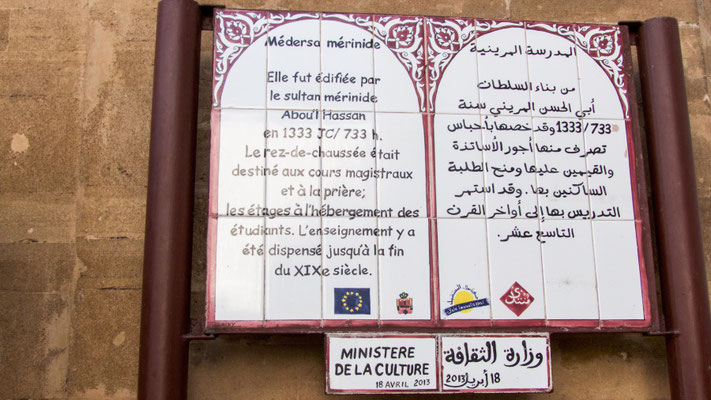 Médersa mérinide
Elle fut édifiée par
le sultan mérinide
Abou'l Hassan
en 1333 JC/ 733 h.
Le rez-de-chaussée était
destiné aux cours magistraux
et à la prière;
les étages à l'hébergement des
étudiants. L'enseignement y a
été dispensé jusqu'à la fin
du XIXe siècle.
المدرسة المرينية
من بناء السلطات
أبي الحسن المريني سنة
1333/733 وقد خصها بأحباس
تصرف منها أجور الأساتذة
والقيمين عليها ومنح الطلبة
الساكنين بها. وقد استمر
التدريس بها إلى أواخر القرن
التاسع عشر.
MINISTERE
DE LA CULTURE
18 AVRIL 2013
وزارة الثقافة
18 أبريل 2013